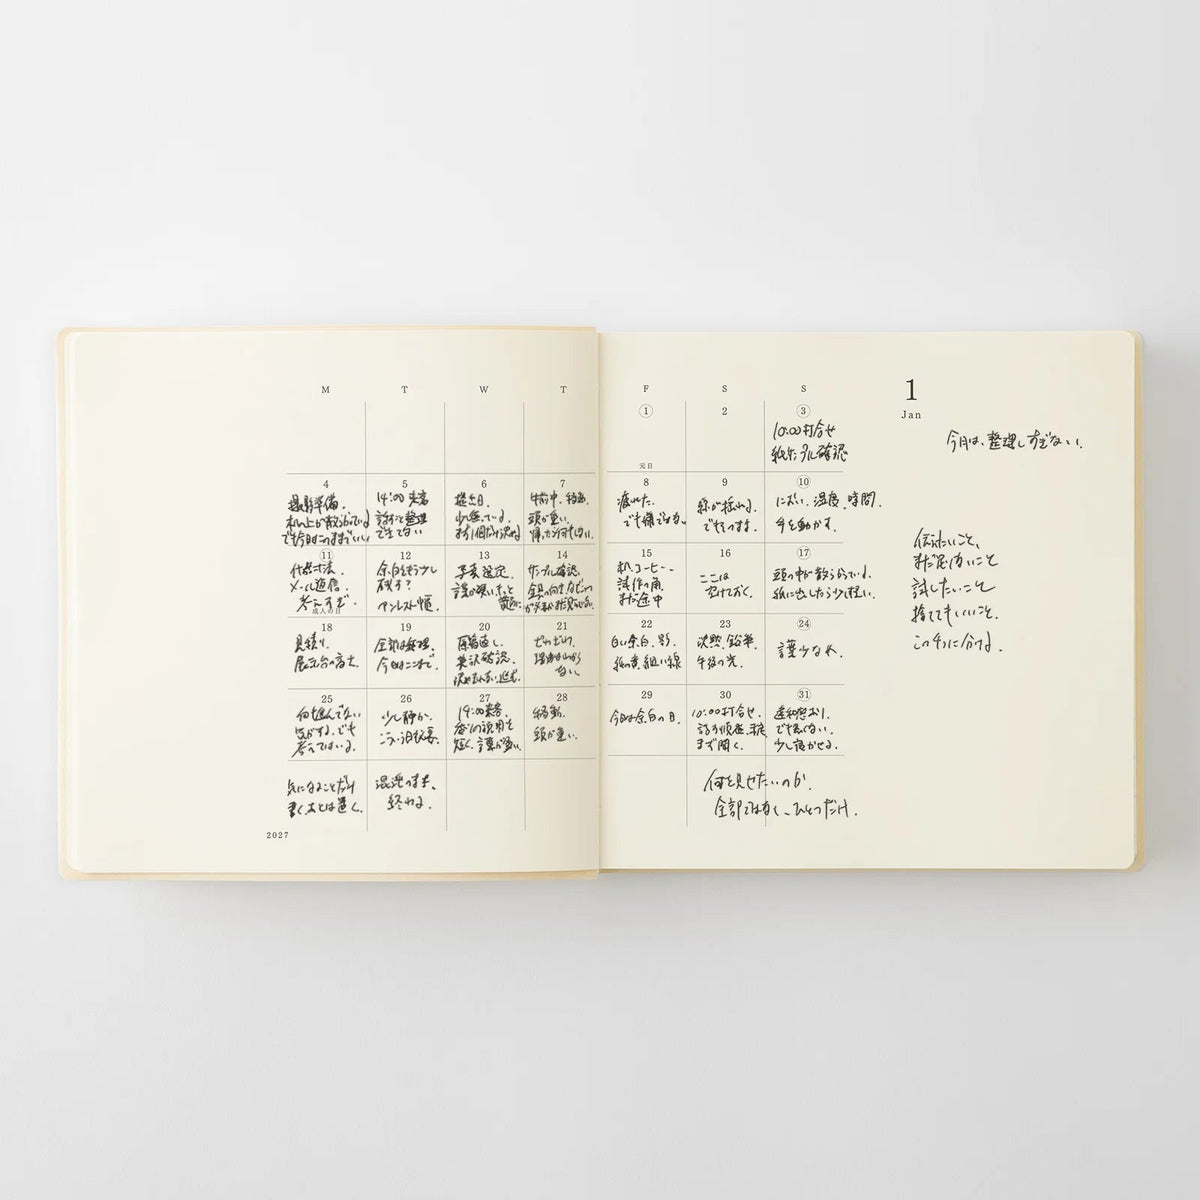 M T W T F S S
1
Jan
今月は、整理しすぎない。
1 2 3
元日
10:00 打合せ
紙サンプル確認
4 5 6 7 8 9 10
撮影準備。
机の上が散らかっている
でも今日はこのままでいい
14:00 来客
話すと整理
できてない
提出日。
少し焦っている。
まず1個だけ決める
午前中、移動。
頭が重い。
帰ったら何もしない。
疲れた。
でも嫌ではない。
線が揺れる。
でもそのまま。
におい、湿度、時間。
手を動かす。
11 12 13 14 15 16 17
成人の日
代官寸法。
メール返信。
考えすぎ。
余白をもう少し
残す?
ペンレスト幅。
サンプル確認。
机、コーヒー、
試作の角、
まだ途中
ここは
空けておく。
頭の中が散らかっている。
紙に出したら少し軽い。
18 19 20 21 22 23 24
見積り。
展示台の高さ。
全部は無理。
今日はここまで。
再構直し。
英訳確認。
理由がわから
ない。
白い余白、影、
紙の束、細い線
沈黙、鉛筆、
午後の光。
謎少なめ。
25 26 27 28 29 30 31
何も進んでない
気がする。でも
考えてはいる。
少し静か。
こういう日も必要。
14:00 来客。
移動。
頭が重い。
今日は余白の日。
10:00 打合せ。
話す順番、
まず聞く。
違和感あり。
でも悪くない。
少し寝かせる。
気になることだけ
書く。あとは置く。
混沌のまま、
終わる。
何を見せたいのか
全部ではなく、ひとつだけ。
伝えたいこと、
まだ足りないこと
試したいこと
捨ててもいいこと。
この4つに分ける。
2027